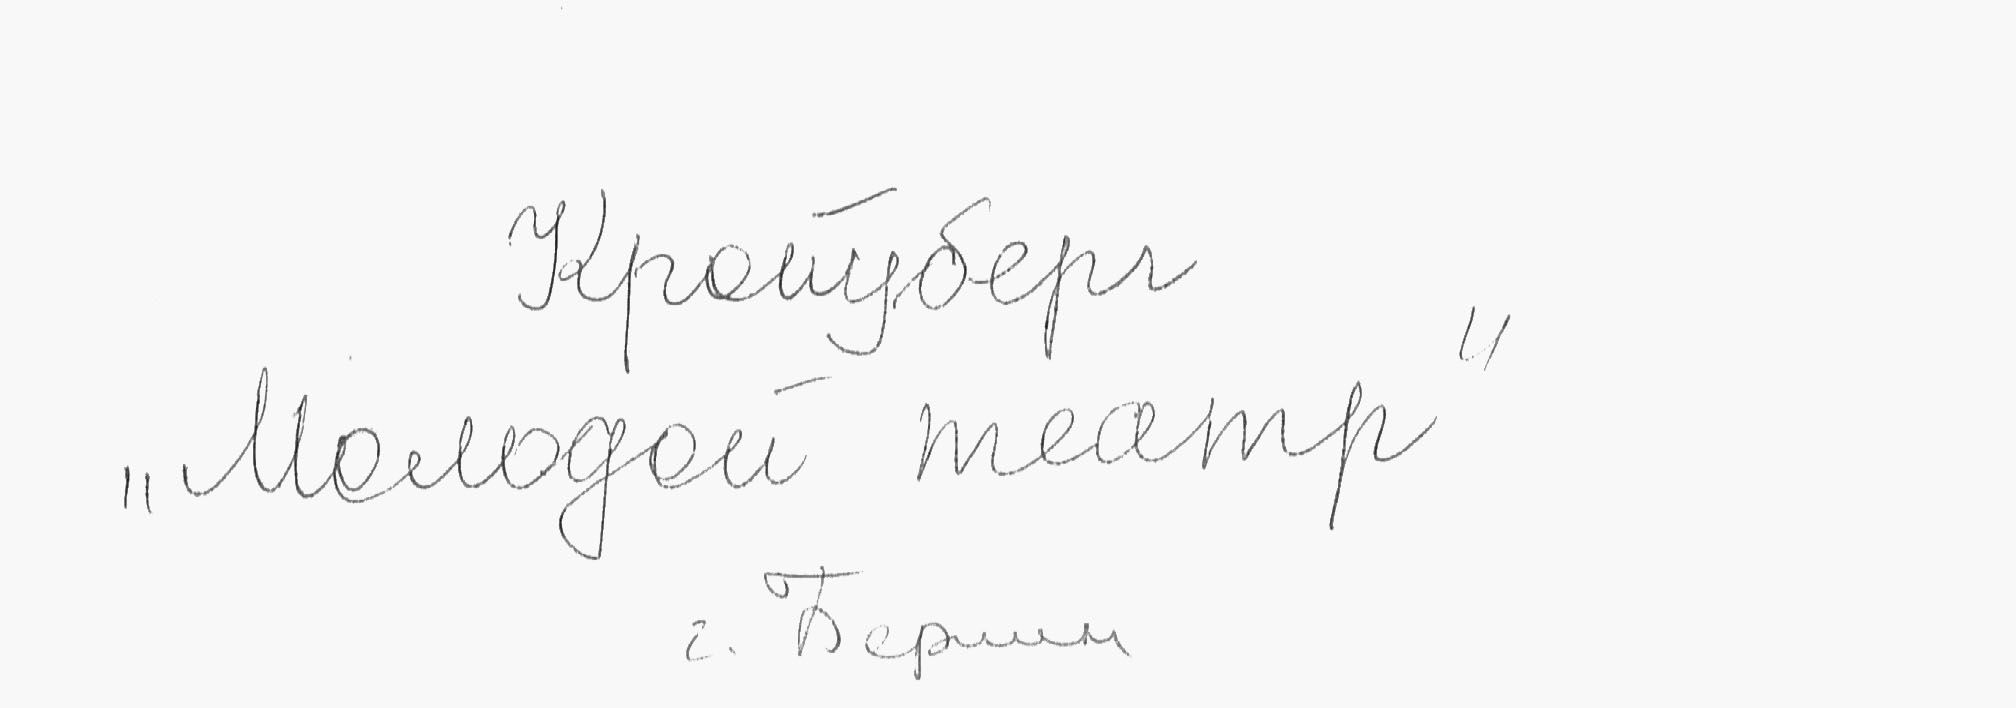 Кройцберг
„Молодой театр"
г. Берлин